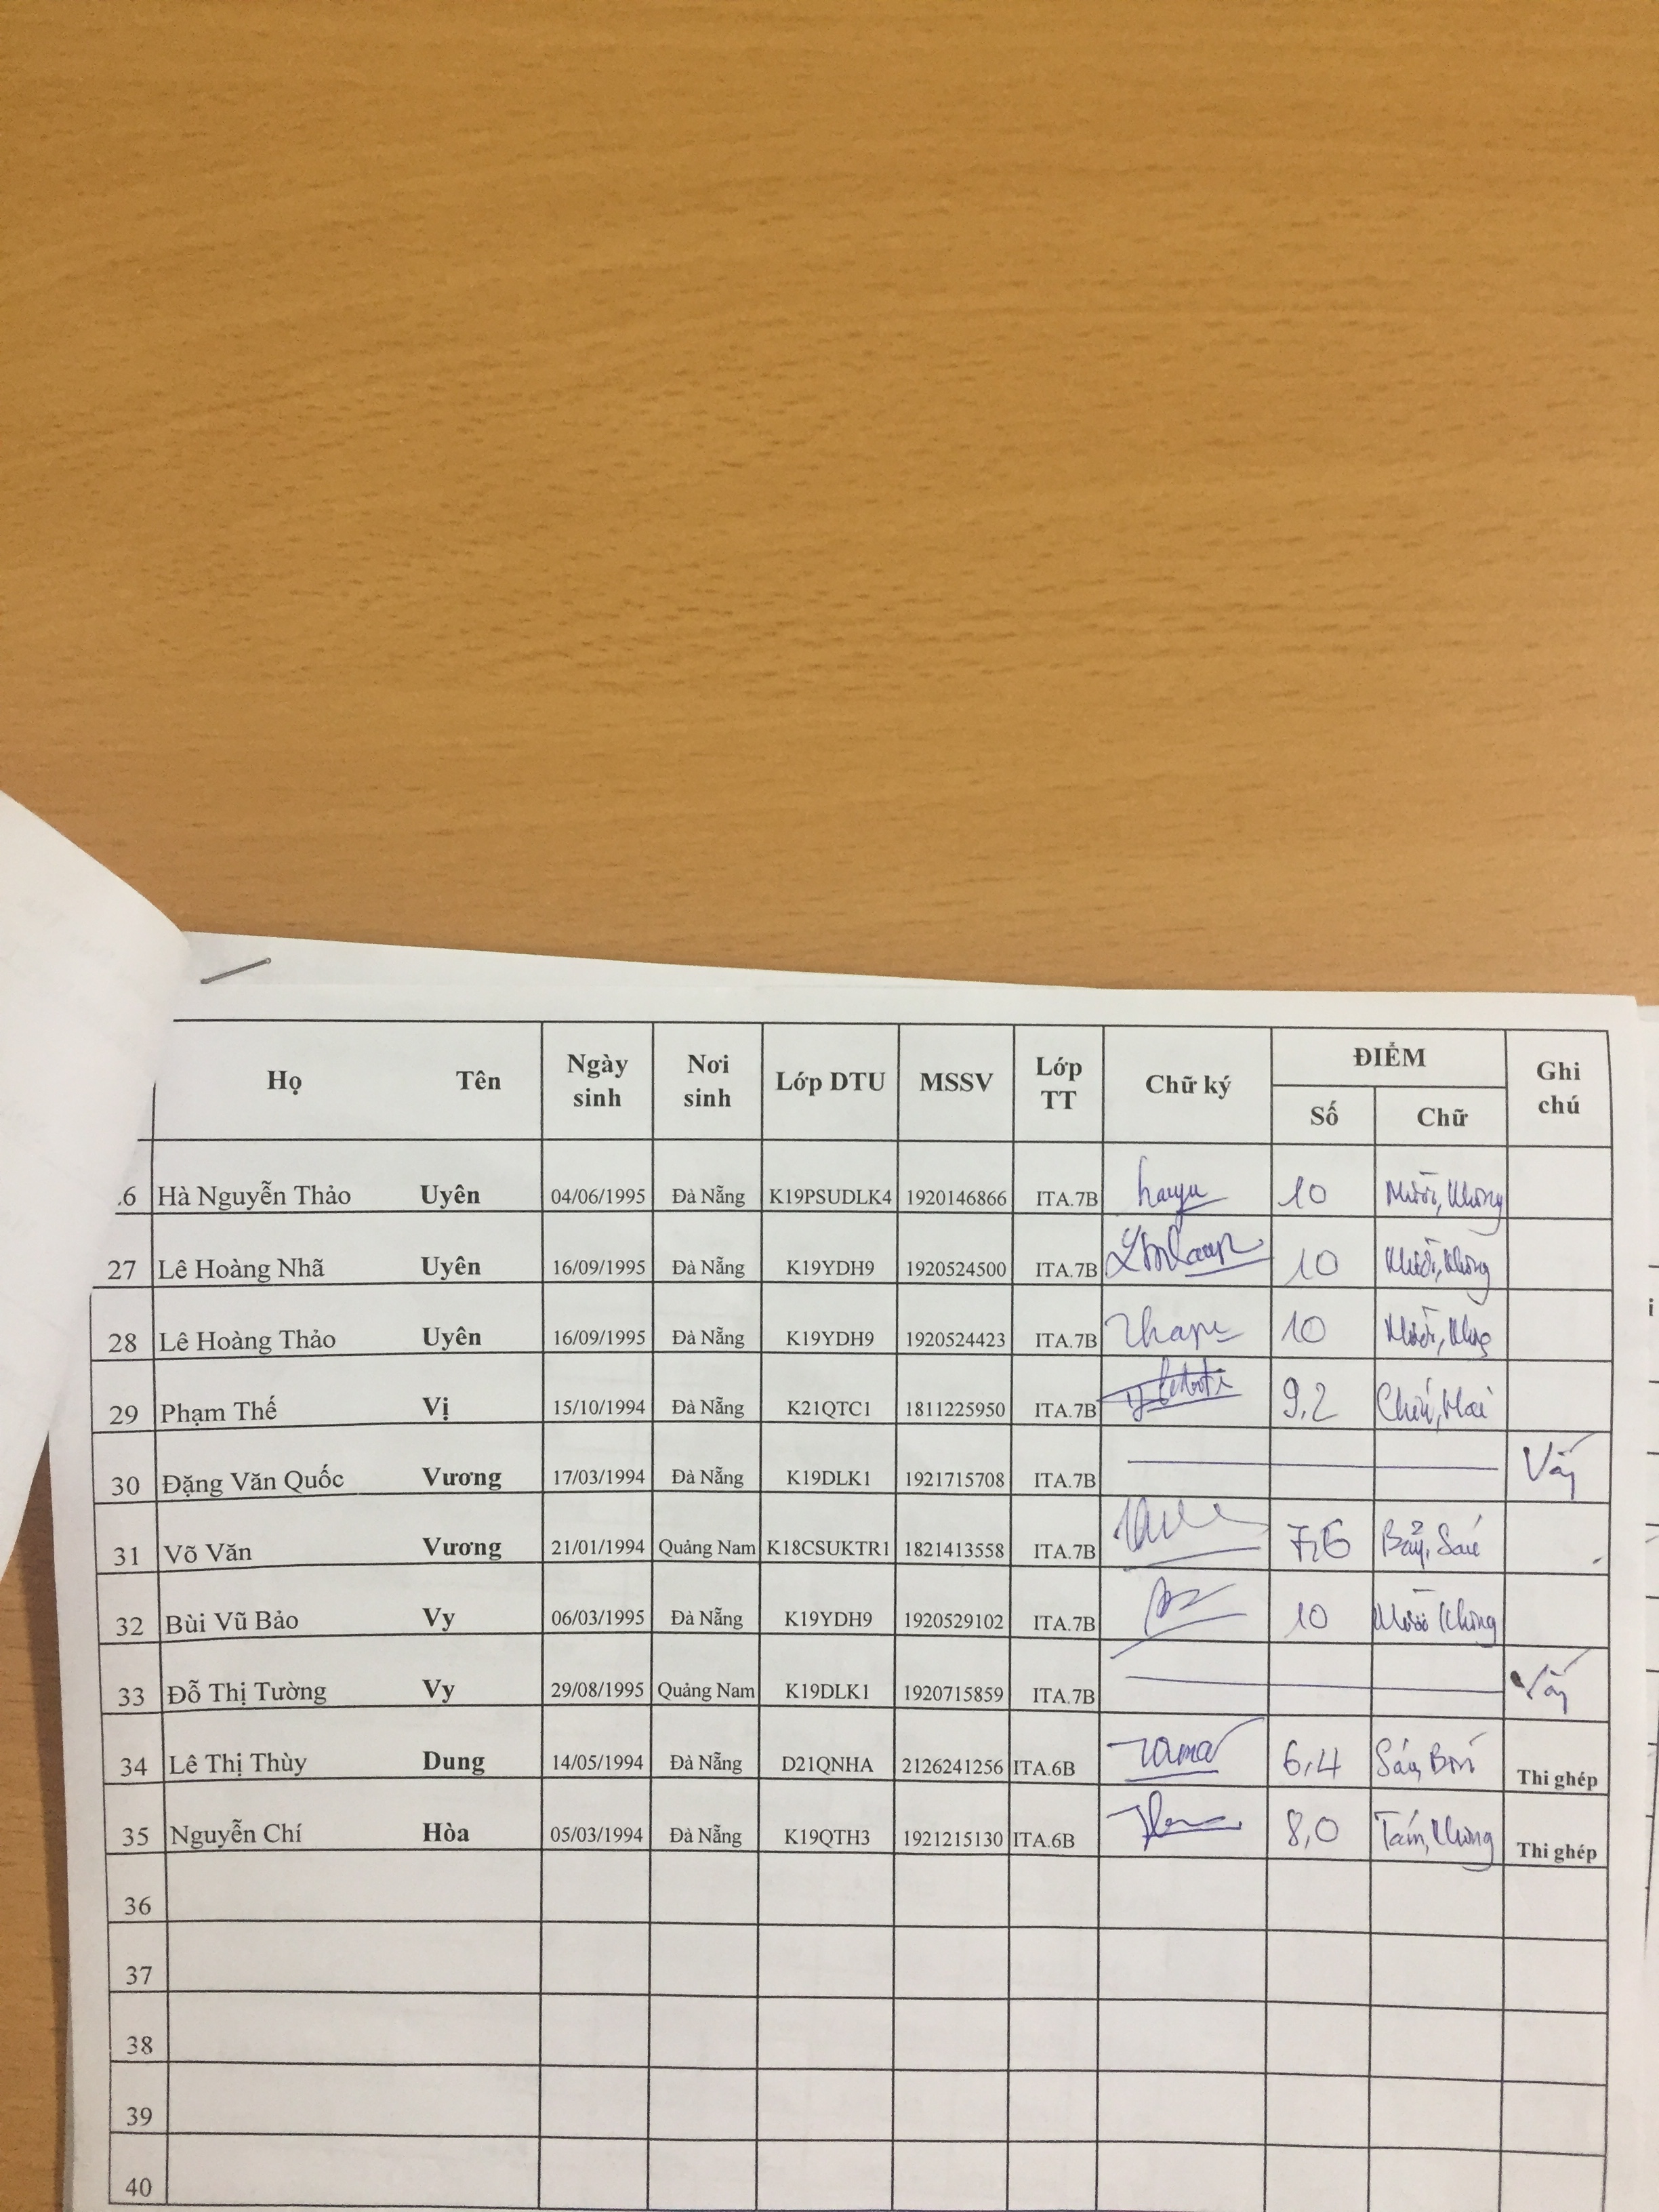 Họ Tên Ngày sinh Nơi sinh Lớp DTU MSSV Lớp TT Chữ ký ĐIỂM Số Chữ Ghi chú
.6 Hà Nguyễn Thảo Uyên 04/06/1995 Đà Nẵng K19PSUDLK4 1920146866 ITA.7B 10 Mười, Không
27 Lê Hoàng Nhã Uyên 16/09/1995 Đà Nẵng K19YDH9 1920524500 ITA.7B 10 Mười, Không
28 Lê Hoàng Thảo Uyên 16/09/1995 Đà Nẵng K19YDH9 1920524423 ITA.7B 10 Mười, Không
29 Phạm Thế Vị 15/10/1994 Đà Nẵng K21QTC1 1811225950 ITA.7B 9,2 Chín, Hai
30 Đặng Văn Quốc Vương 17/03/1994 Đà Nẵng K19DLK1 1921715708 ITA.7B Vắng
31 Võ Văn Vương 21/01/1994 Quảng Nam K18CSUKTR1 1821413558 ITA.7B 7,6 Bảy, Sáu
32 Bùi Vũ Bảo Vy 06/03/1995 Đà Nẵng K19YDH9 1920529102 ITA.7B 10 Mười Không
33 Đỗ Thị Tường Vy 29/08/1995 Quảng Nam K19DLK1 1920715859 ITA.7B Vắng
34 Lê Thị Thùy Dung 14/05/1994 Đà Nẵng D21QNHA 2126241256 ITA.6B 6,4 Sáu, Bốn Thi ghép
35 Nguyễn Chí Hòa 05/03/1994 Đà Nẵng K19QTH3 1921215130 ITA.6B 8,0 Tám, Không Thi ghép
36
37
38
39
40